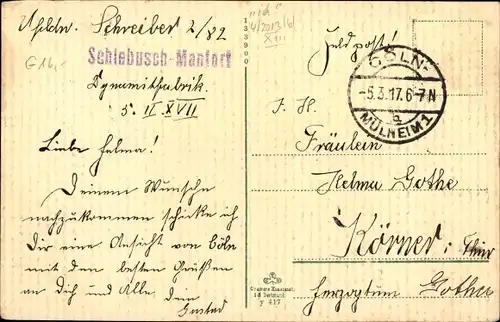 Schreiber 2/82
Schlebusch-Manfort
G14,-
Dynamitfabrik.
5. II. XVII
Liebe Helma!
Deinem Wunsche
nachzukommen schicke ich
Dir eine Ansicht von Cöln
mit den besten Grüßen
an Dich und Alle dein
Gustav
133900
4/2013/6/
XIII
Feldpost!
CÖLN-
-5.3.17.6-7N
a
MÜLHEIM 1
F. H.
Fräulein
Helma Gothe
Körner, Thür
Herzogtum Gotha
F 417